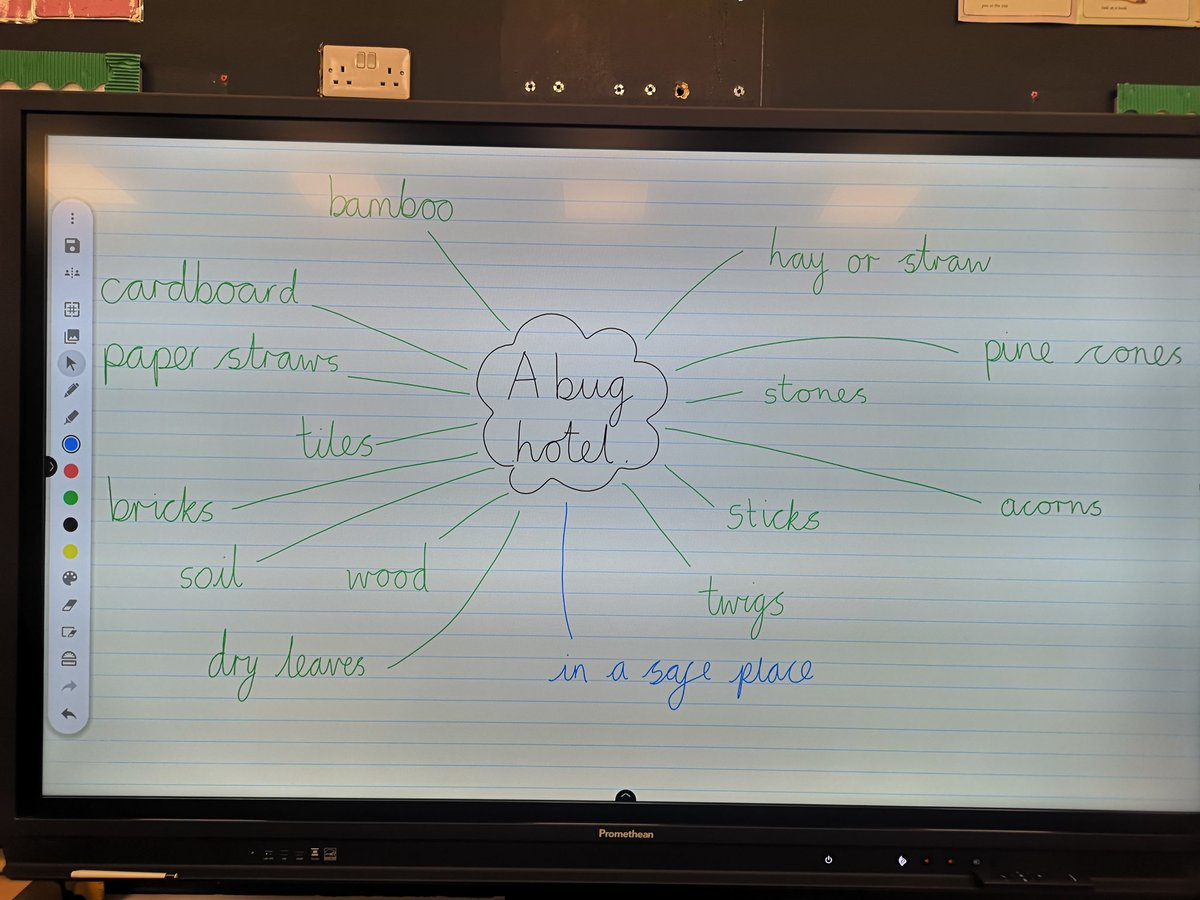 bamboo
hay or straw
cardboard
paper straws
pine cones
A bug
hotel.
stones
tiles
bricks
acorns
sticks
soil
wood
twigs
dry leaves
in a safe place
Promethean